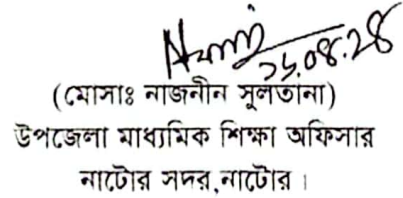 ২১.০৪.২৪
(মোসাঃ নাজনীন সুলতানা)
উপজেলা মাধ্যমিক শিক্ষা অফিসার
নাটোর সদর,নাটোর।